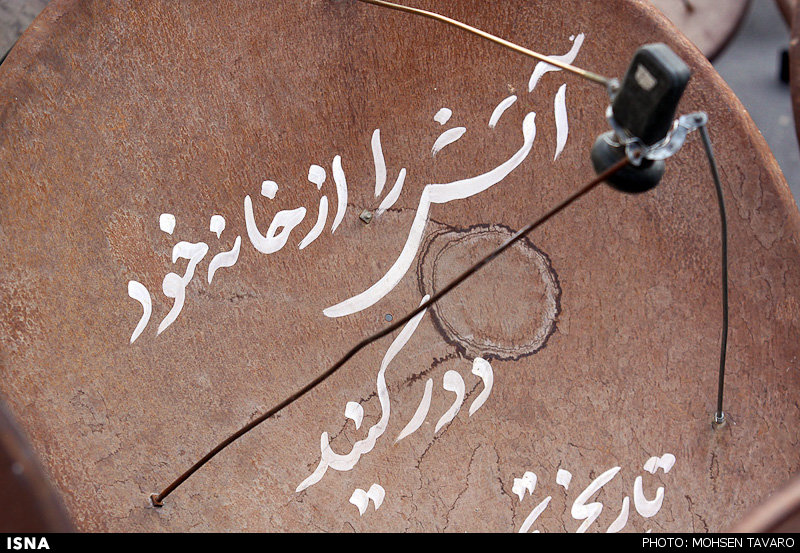 آتش را از خانه خود
دور کنید
ISNA
PHOTO: MOHSEN TAVARO